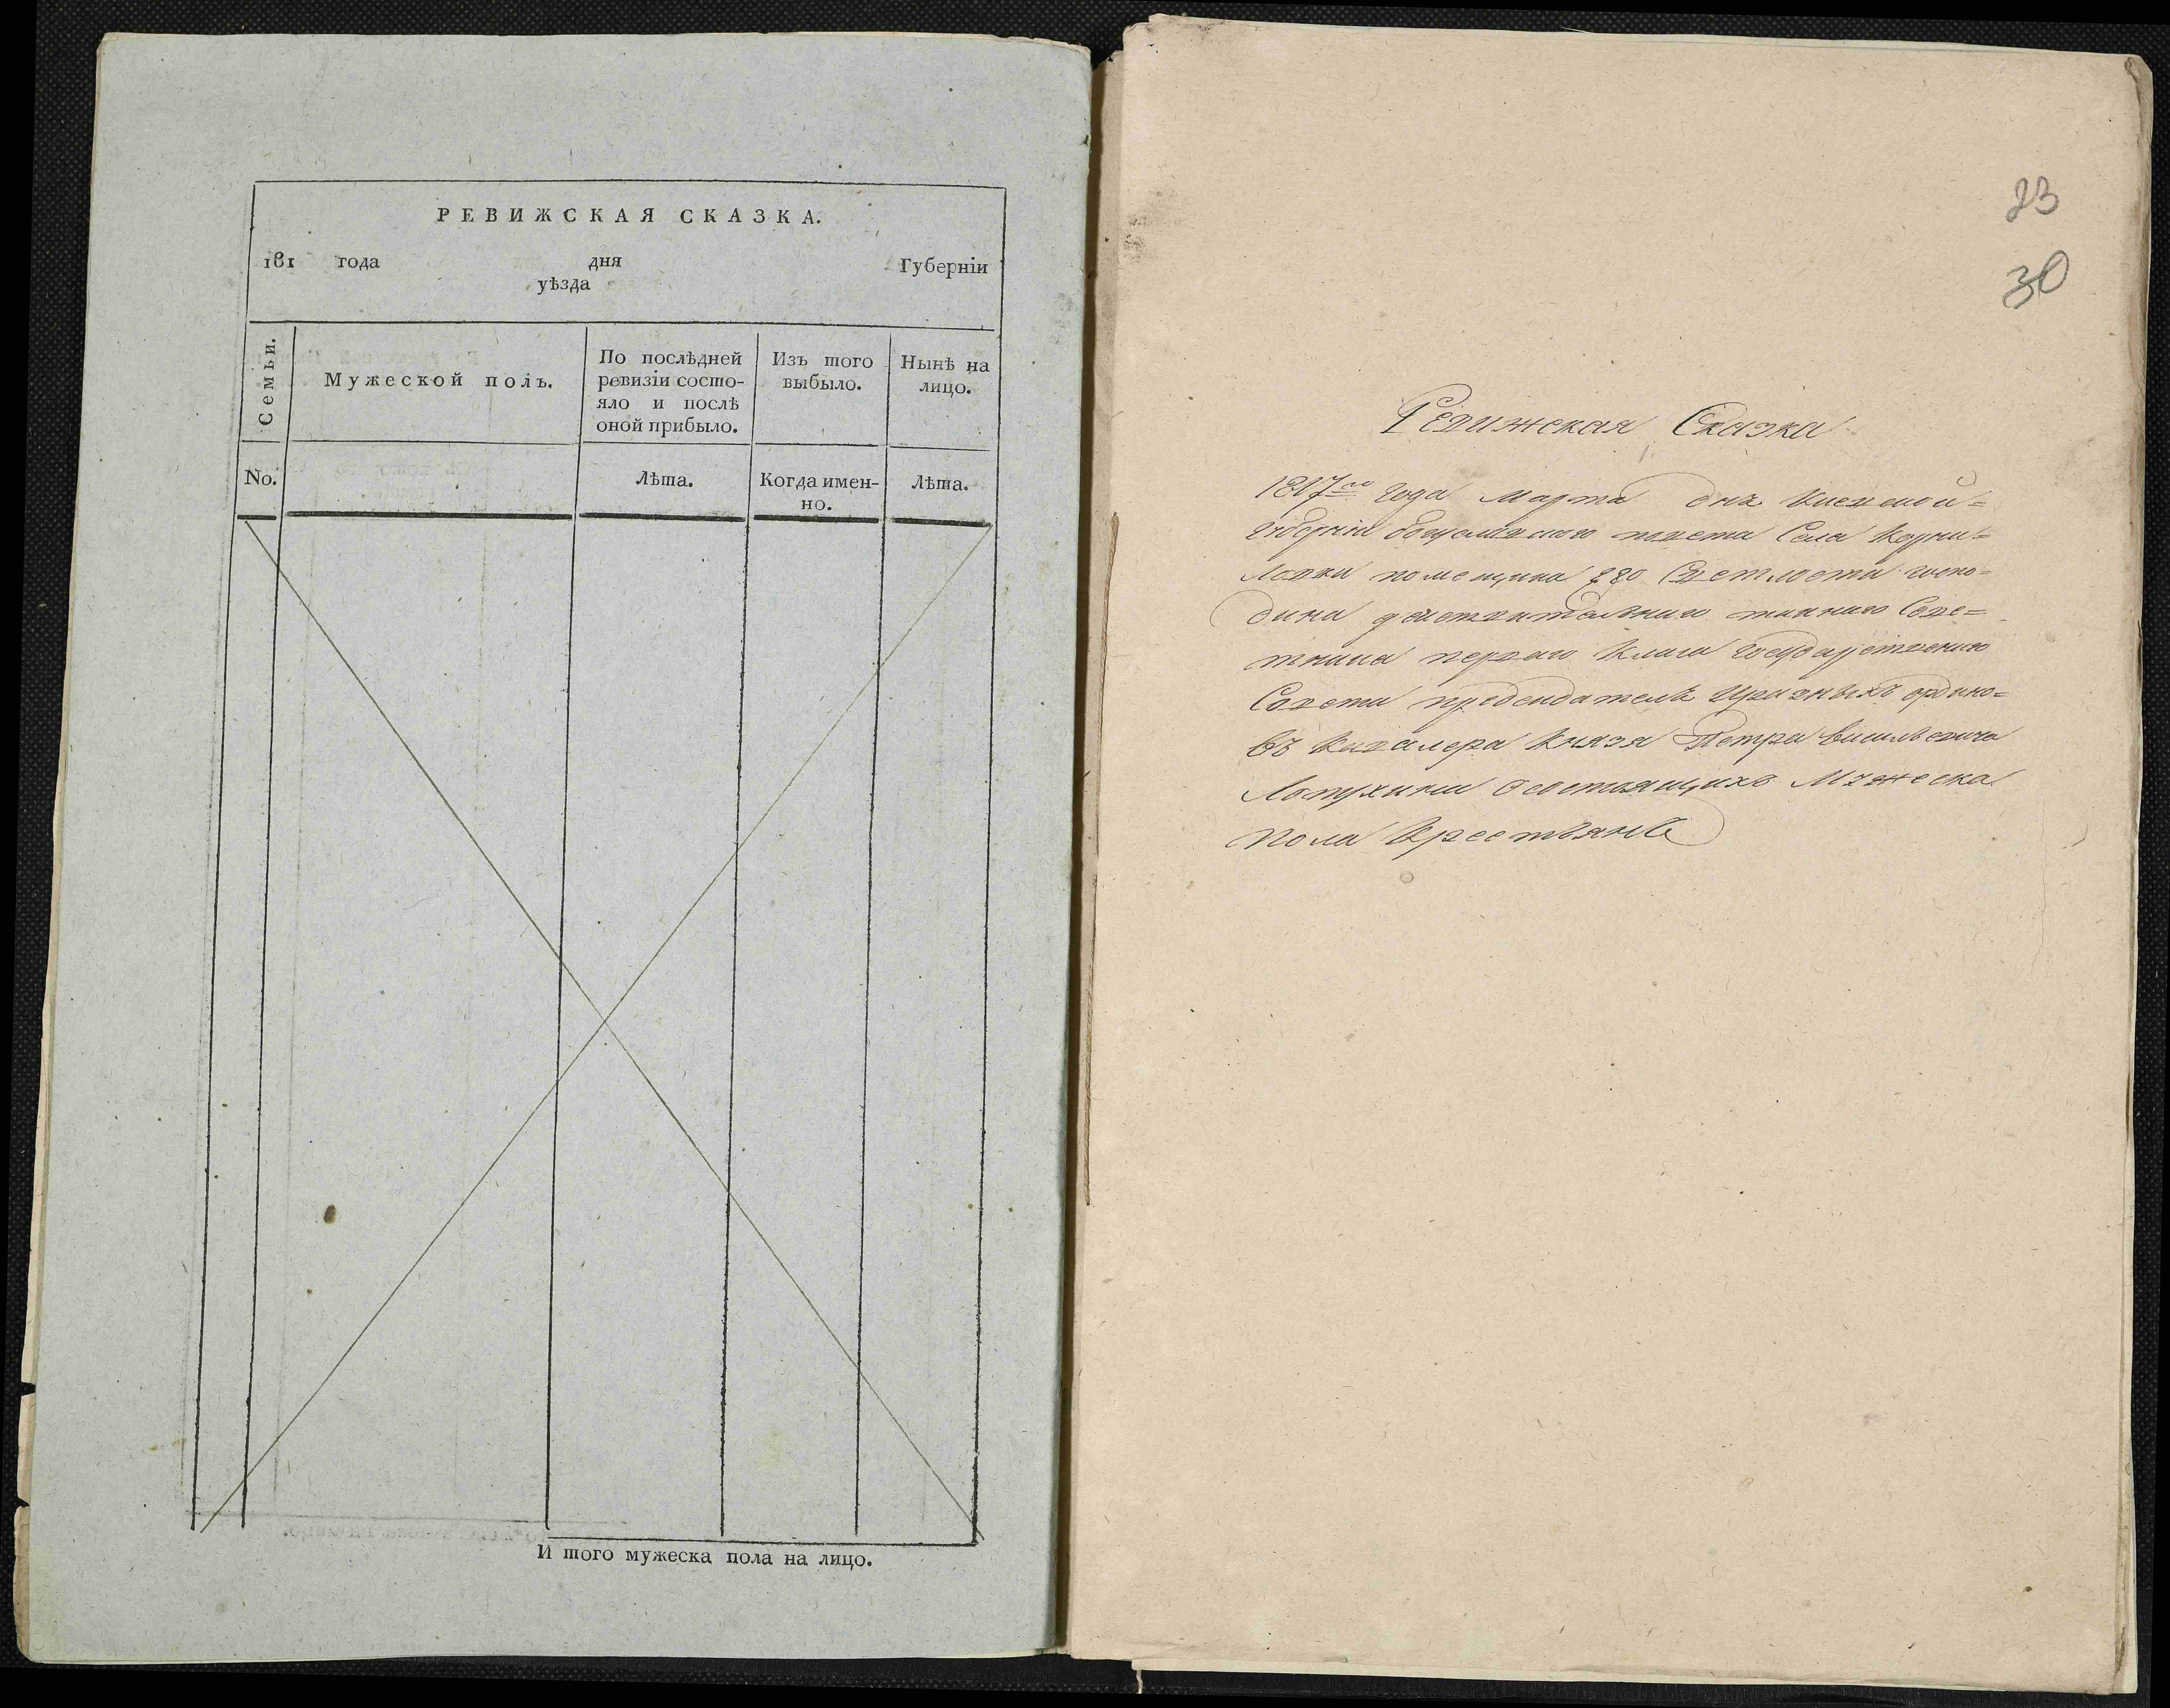 РЕВИЖСКАЯ СКАЗКА.
181 года дня Губерніи
уѣзда
Семьи.
Мужеской полъ.
По послѣдней
ревизіи состо-
яло и послѣ
оной прибыло.
Изъ того
выбыло.
Нынѣ на
лицо.
No.
Лѣта.
Когда имен-
но.
Лѣта.
И того мужеска пола на лицо.
23
30
Ревижская Сказка
1817го года Марта дня Киевской=
Губерніи богуславского повета Села Корни=
ловки помещика его Светлости госпо=
дина действительнаго тайнаго Сове=
тника перваго Класа Государственнаго
Совета председателя Изразныхъ ордино=
въ Кавалера Князя Петра васильевича
Лопухина состоящихъ Мужеска
пола Крестьянъ